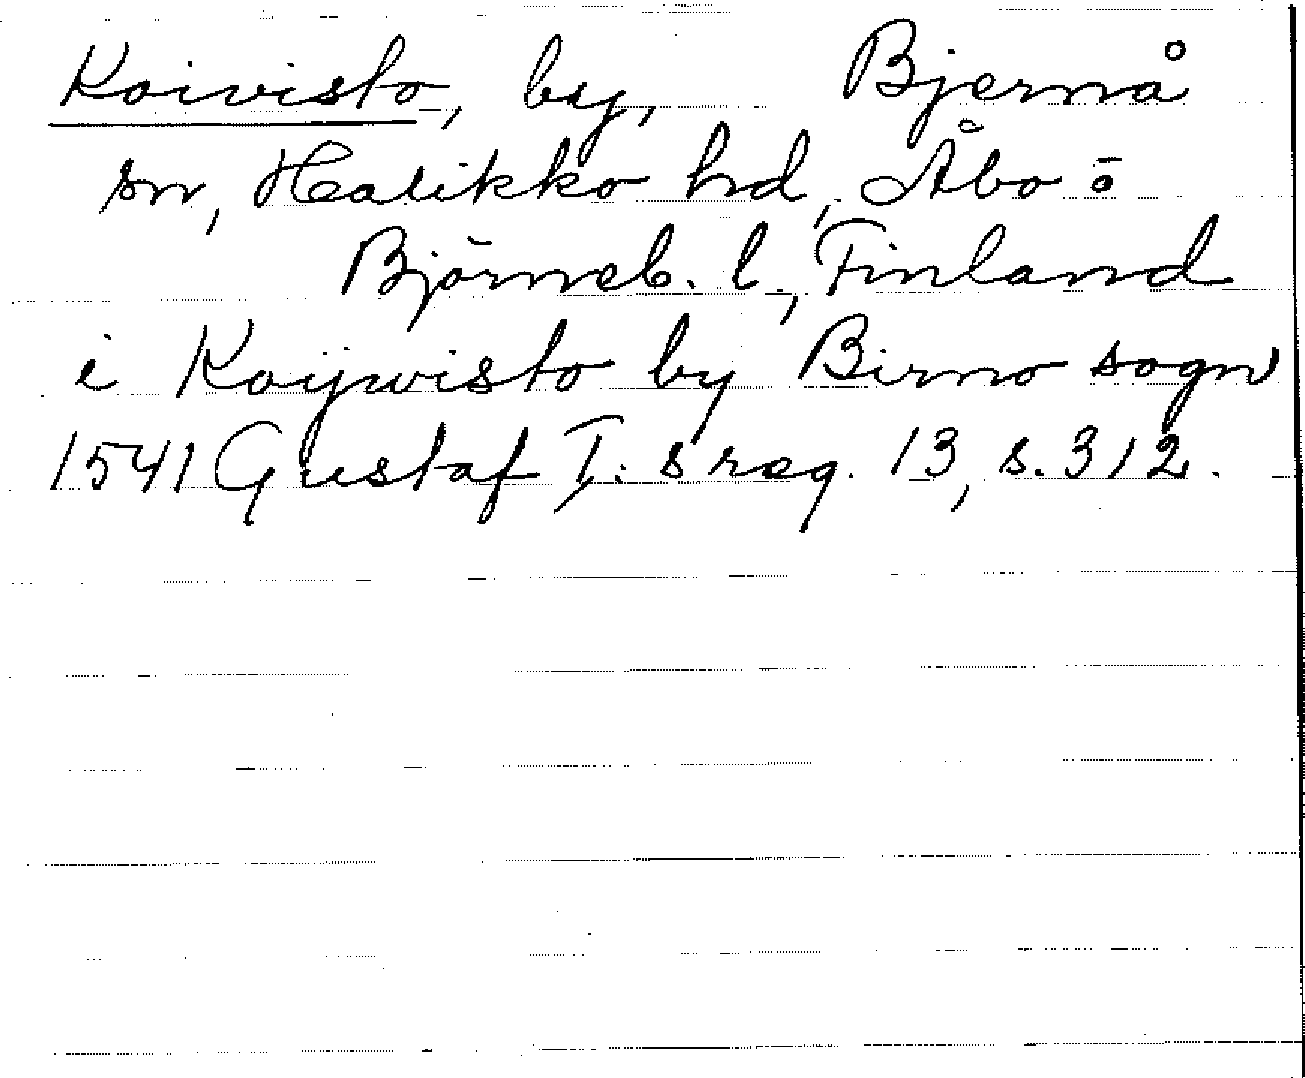 Koivisto, by, Bjernå
sn, Halikko hd, Åbo o
Björneb. l., Finland
i Koijwisto by Birno sogn
1541 Gustaf I:s reg. 13, s. 312.